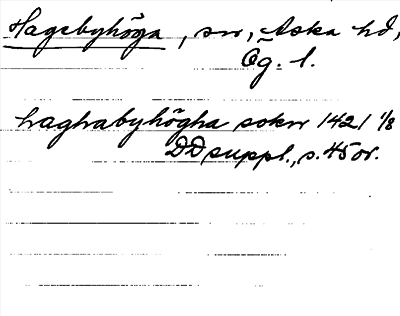 Hagebyhöga, sn, Aska hd,
Ög. l.
haghabyhögha sokn 1421 1/8
DD suppl., s. 45 or.